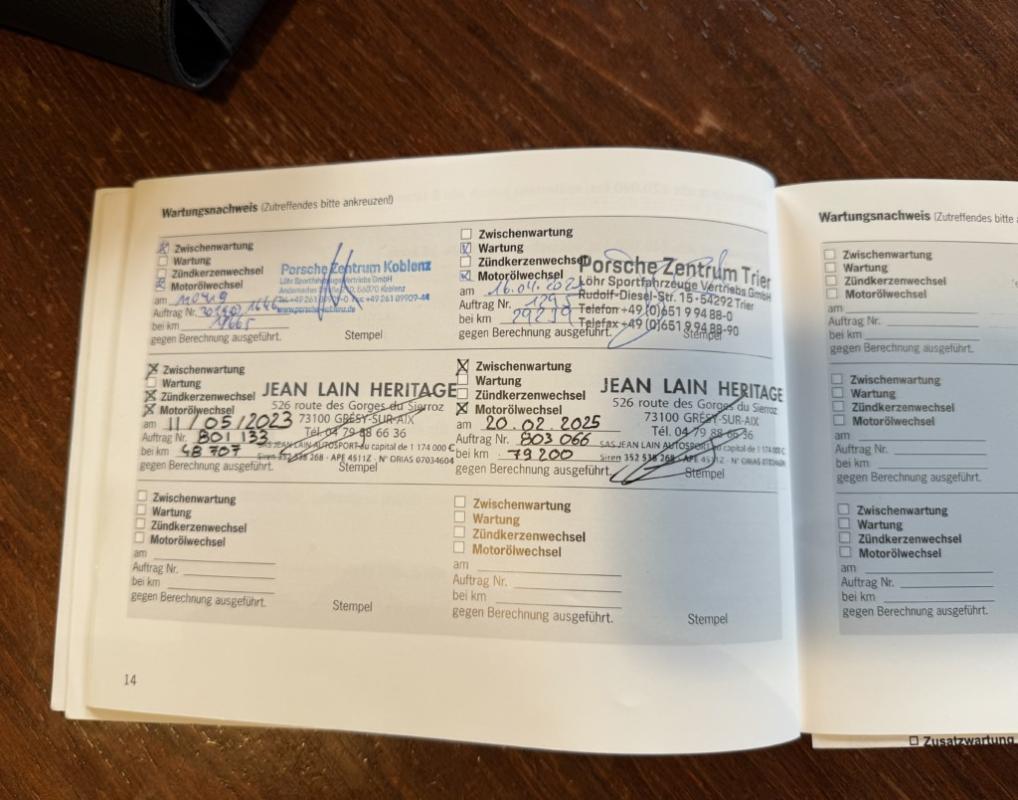 Wartungsnachweis (Zutreffendes bitte ankreuzen!)
Zwischenwartung
Wartung
Zündkerzenwechsel
Motorölwechsel
am
Auftrag Nr.
bei km
gegen Berechnung ausgeführt.
Porsche Zentrum Koblenz
Löhr Sportfahrzeuge Vertriebs GmbH
Stempel
Zwischenwartung
Wartung
Zündkerzenwechsel
Motorölwechsel
am 16.04.
Auftrag Nr.
bei km 29219
gegen Berechnung ausgeführt.
Porsche Zentrum Trier
Löhr Sportfahrzeuge Vertriebs GmbH
Rudolf-Diesel-Str. 15 · 54292 Trier
Telefon +49 (0)651 9 94 88-0
Telefax +49 (0)651 9 94 88-90
Stempel
Zwischenwartung
Wartung
Zündkerzenwechsel
Motorölwechsel
am 11/05/2023
Auftrag Nr. 801 133
bei km 48 707
gegen Berechnung ausgeführt.
JEAN LAIN HERITAGE
526 route des Gorges du Sierroz
73100 GRÉSY-SUR-AIX
Tél. 04 79 88 66 36
SAS JEAN LAIN AUTOSPORT au capital de 1 174 000 €
Siren 352 538 268 - APE 4511Z - N° ORIAS 07034604
Stempel
Zwischenwartung
Wartung
Zündkerzenwechsel
Motorölwechsel
am 20.02.2025
Auftrag Nr. 803 066
bei km 79 200
gegen Berechnung ausgeführt.
JEAN LAIN HERITAGE
526 route des Gorges du Sierroz
73100 GRÉSY-SUR-AIX
Tél. 04 79 88 66 36
SAS JEAN LAIN AUTOSPORT au capital de 1 174 000 €
Siren 352 538 268 - APE 4511Z - N° ORIAS 07034604
Stempel
Zwischenwartung
Wartung
Zündkerzenwechsel
Motorölwechsel
am
Auftrag Nr.
bei km
gegen Berechnung ausgeführt.
Stempel
Zwischenwartung
Wartung
Zündkerzenwechsel
Motorölwechsel
am
Auftrag Nr.
bei km
gegen Berechnung ausgeführt.
Stempel
14
Wartungsnachweis (Zutreffendes bitte
Zwischenwartung
Wartung
Zündkerzenwechsel
Motorölwechsel
am
Auftrag Nr.
bei km
gegen Berechnung ausgeführt.
Zwischenwartung
Wartung
Zündkerzenwechsel
Motorölwechsel
am
Auftrag Nr.
bei km
gegen Berechnung ausgeführt.
Zwischenwartung
Wartung
Zündkerzenwechsel
Motorölwechsel
am
Auftrag Nr.
bei km
gegen Berechnung ausgeführt.
Zusatzwartung